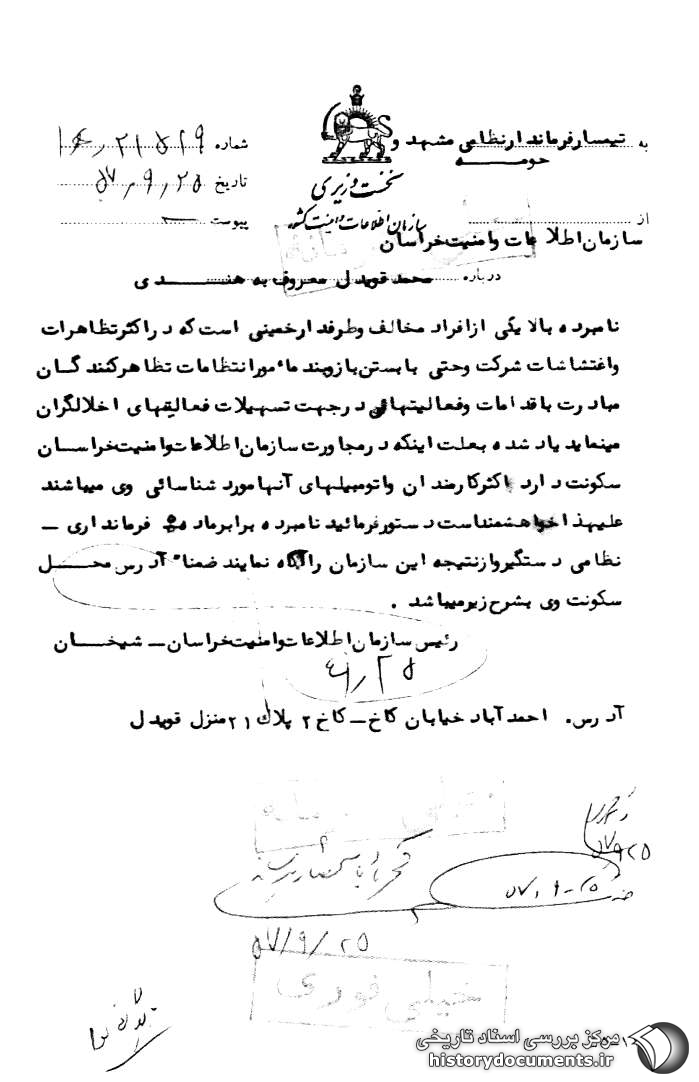 به تیمسار فرماندار نظامی مشهد و
حومه
شماره ۲۱۵۲۹
تاریخ ۵۷٫۹٫۲۵
پیوست
نخست وزیری
سازمان اطلاعات و امنیت کشور
از
سازمان اطلاعات وامنیت خراسان
درباره محمد قویدل معروف به هنــدی
نامبرده بالا یکی ازافراد مخالف وطرفدارخمینی است که دراکثرتظاهرات
واغتشاشات شرکت وحتی بابستن بازوبند ماٴمورانتظامات تظاهرکنندگان
مبادرت باقدامات وفعالیتهائی درجهت تسهیلات فعالیتهای اخلالگران
مینماید یاد شده بعلت اینکه درمجاورت سازمان اطلاعات وامنیت خراسان
سکونت دارد اکثرکارمندان واتومبیلهای آنهامورد شناسائی وی میباشند
علیهذا خواهشمنداست دستورفرمائید نامبرده برابرماده فرمانداری –
نظامی دستگیروازنتیجه این سازمان راآگاه نمایند ضمناً آدرس محــل
سکونت وی بشرح زیرمیباشد .
رئیس سازمان اطلاعات وامنیت خراسان – شیخــان
۹٫۲۵
آدرس. احمدآباد خیابان کاخ – کاخ ۲ پلاك ۲۱ منزل قویدل
۵۷٫۹٫۲۵
۵۷٫۹٫۲۵
۵۷/۹/۲۵
خیلی فوری
مرکز بررسی اسناد تاریخی
historydocuments.ir